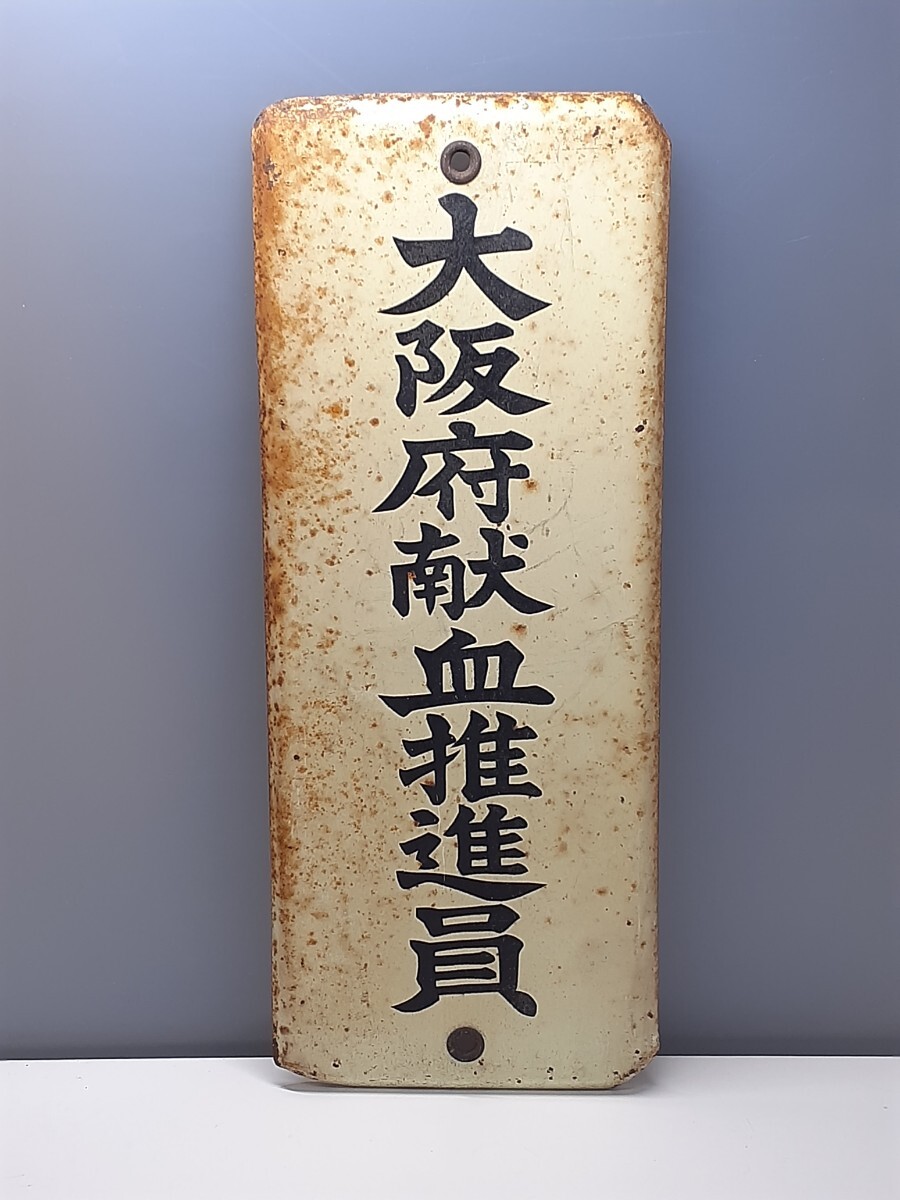 大阪府献血推進員